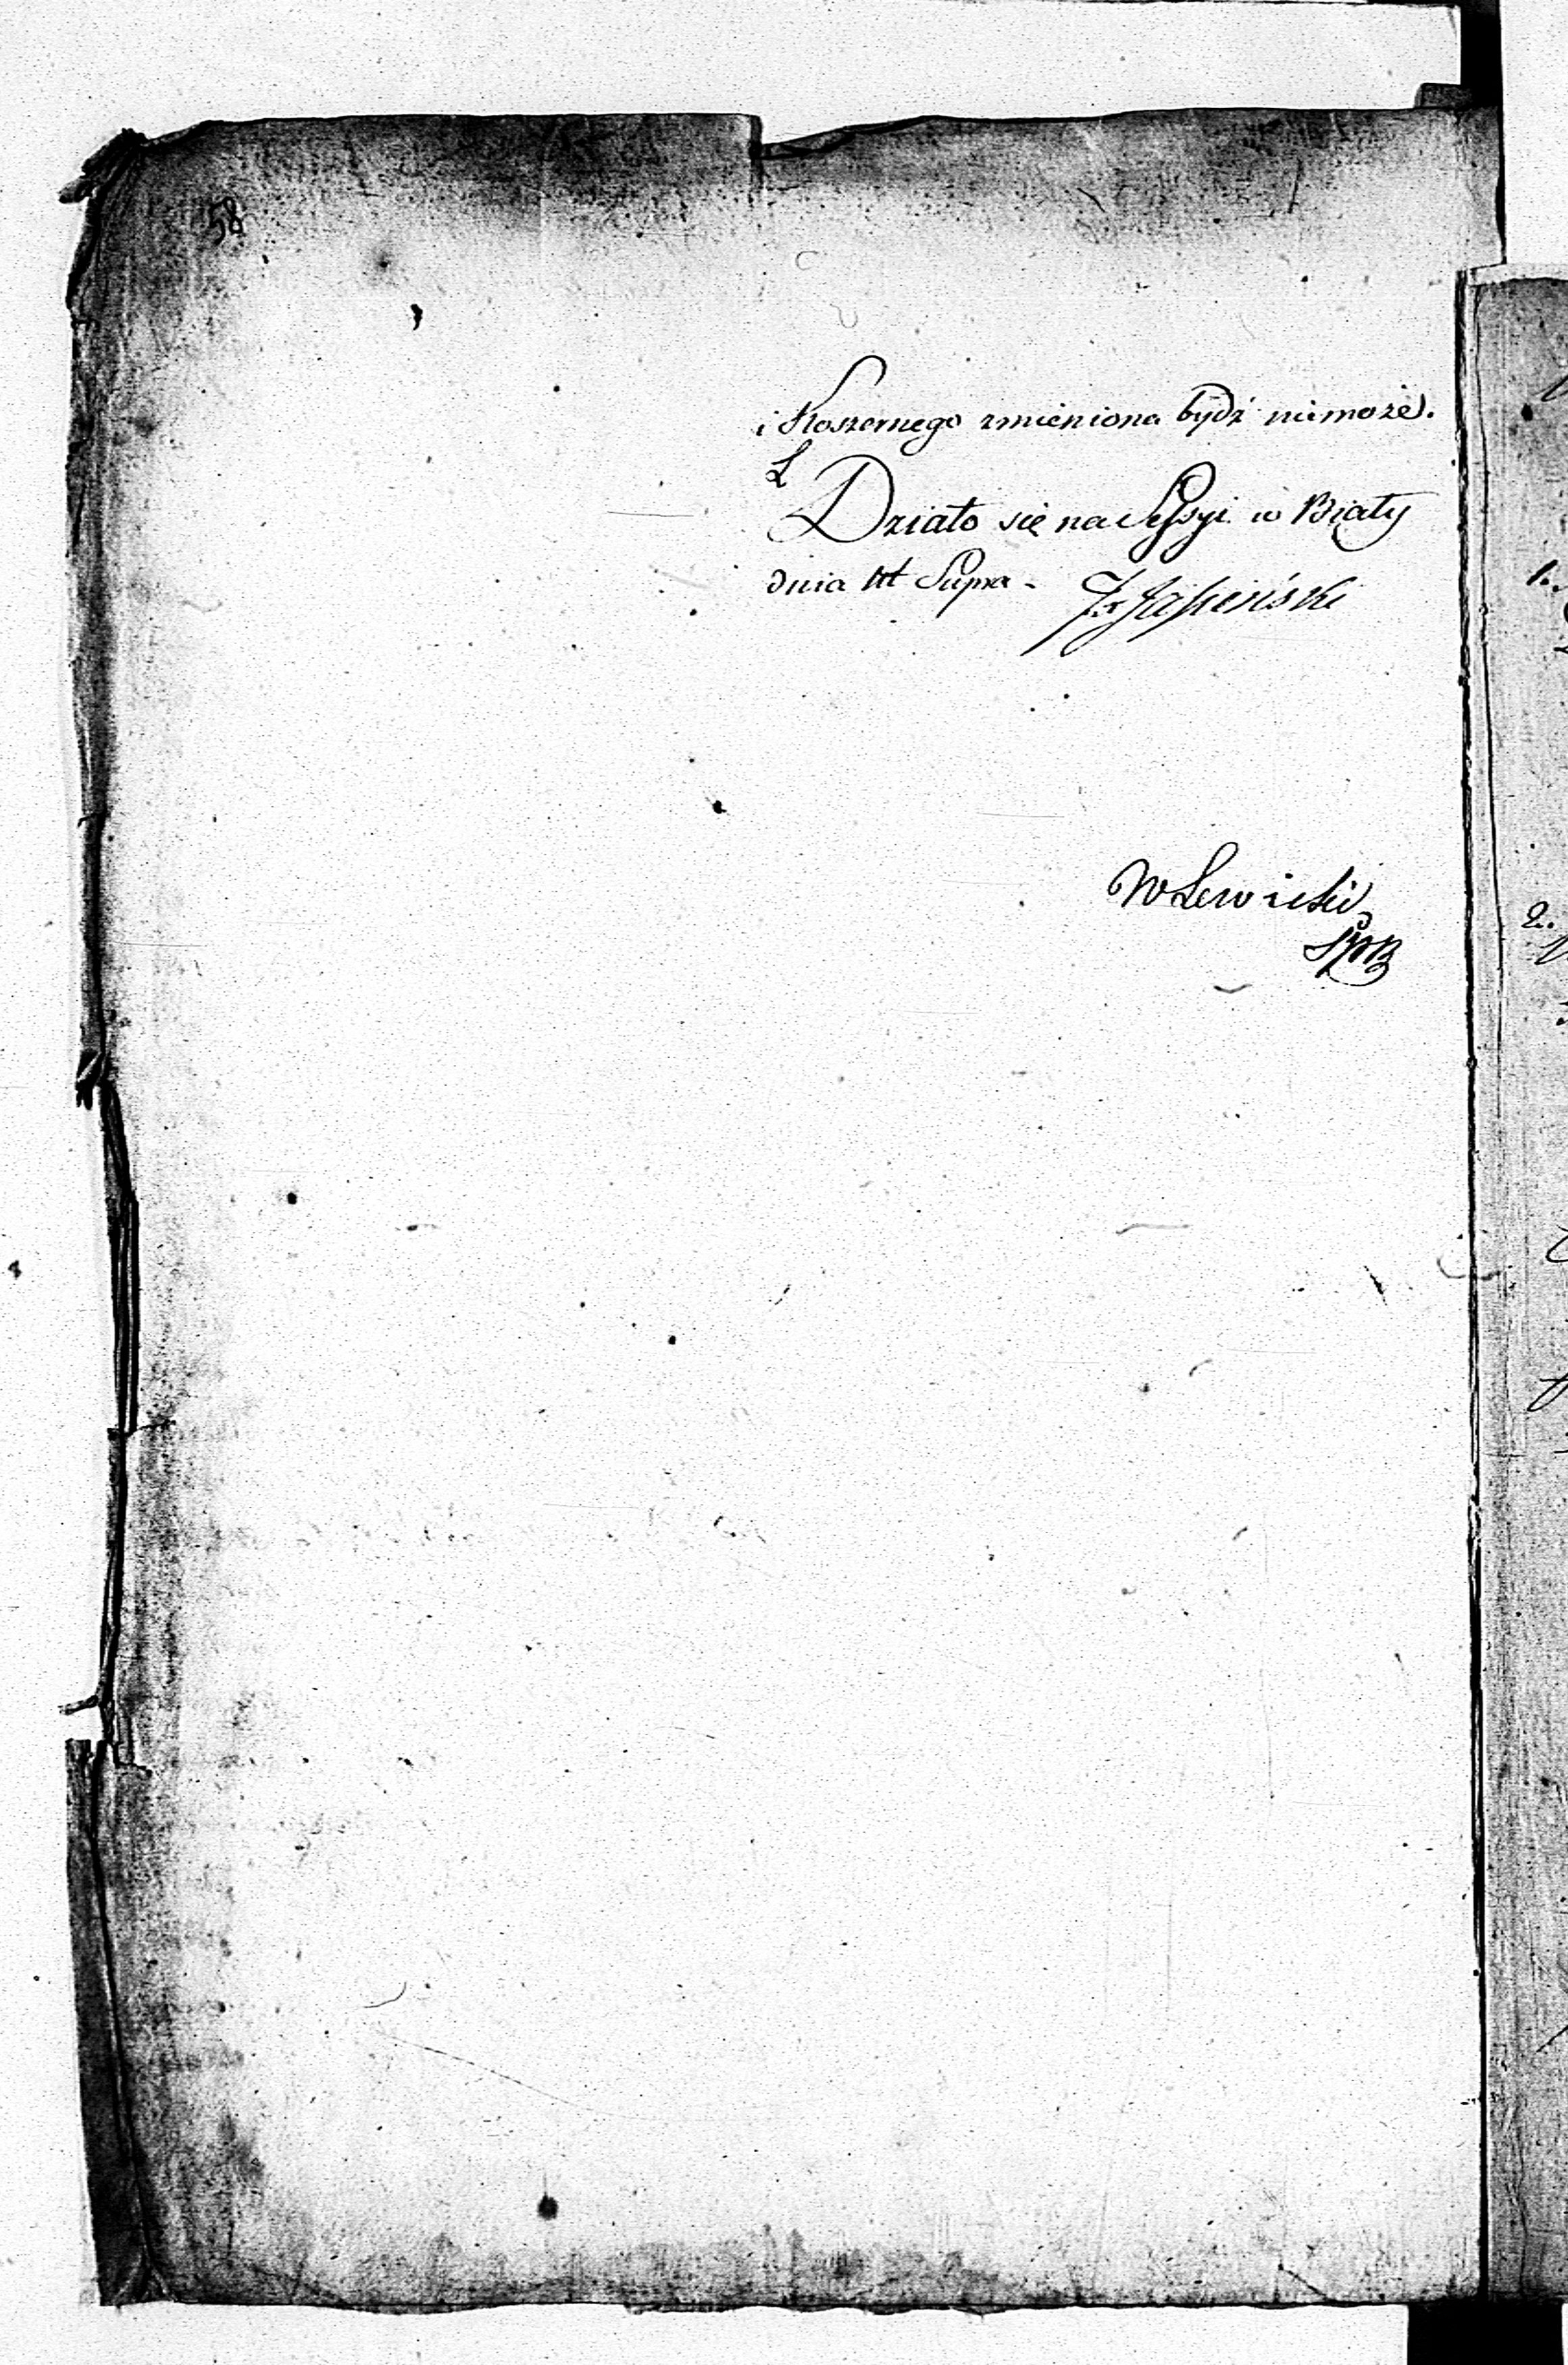 58
i Koszernego zmieniona bydź niemoże.
Działo się na Sessyi w Biały
dnia ut Supra -
WLewicki